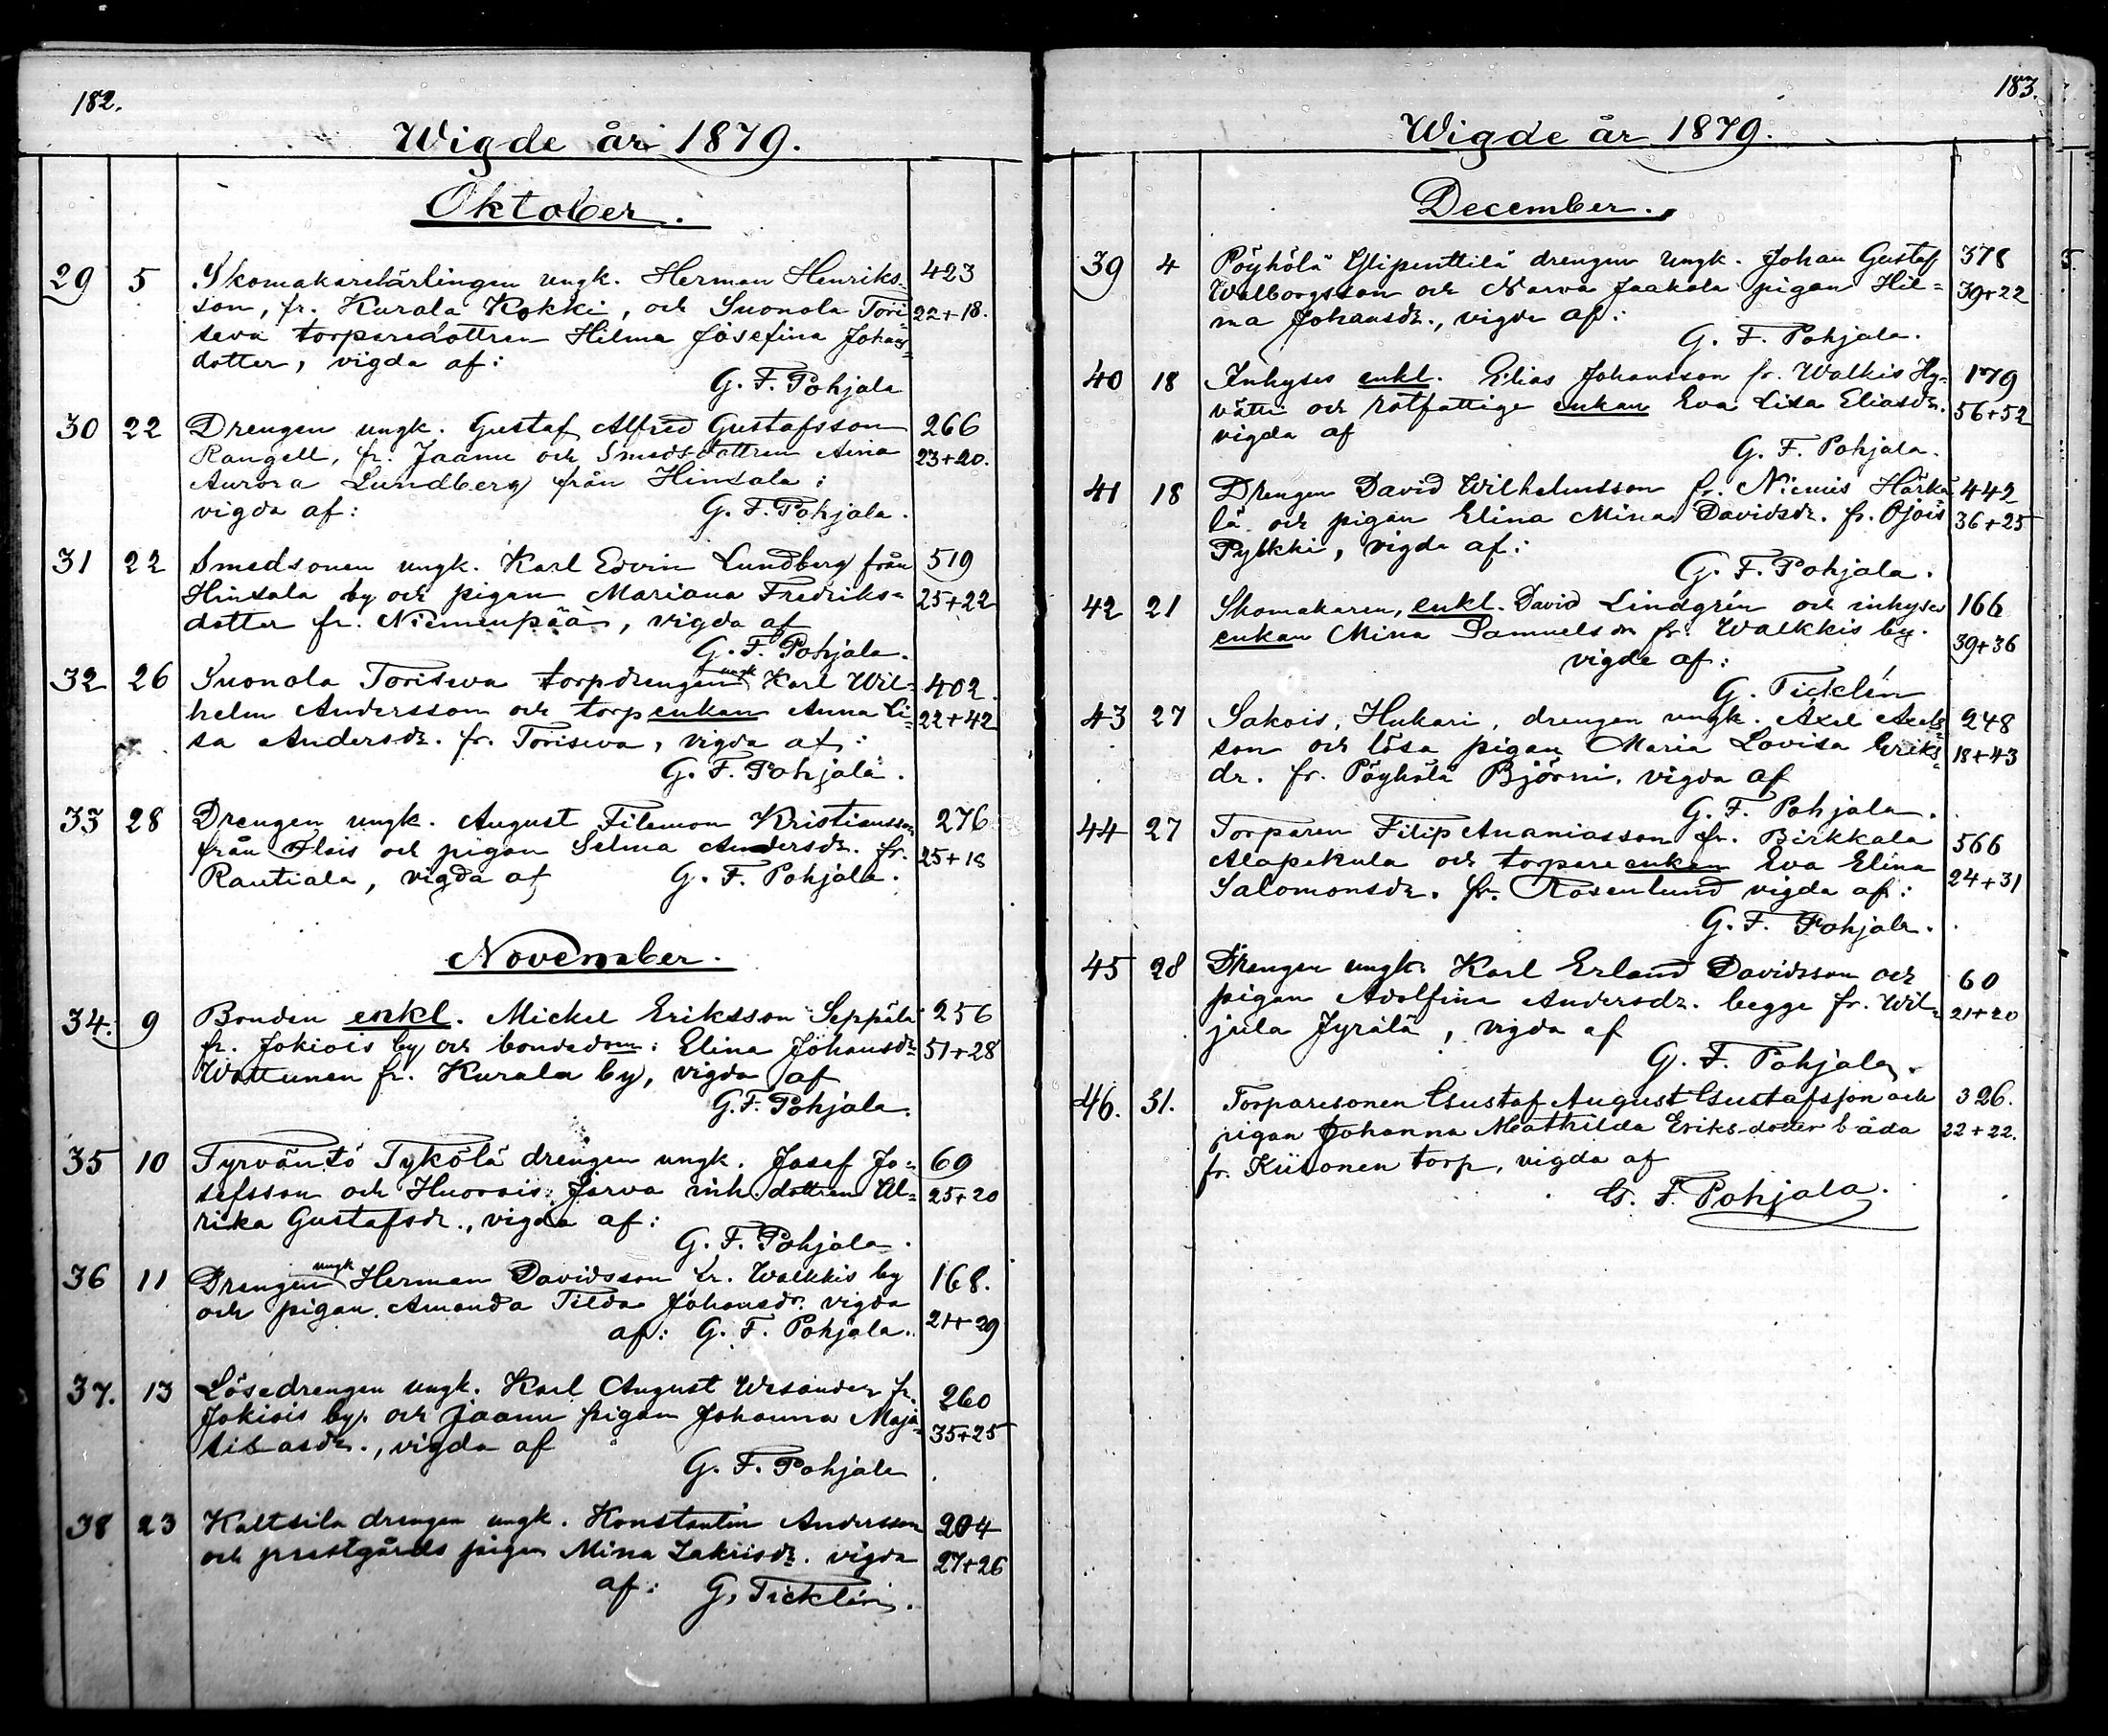 182.
Wigde år 1879.
Oktober.
29 5 Skomakarelärlingen ungk. Herman Henriks- 423
son, fr. Kurala Kokki, och Suonola Tori- 22+18.
seva torparedottren Hilma Josefina Johans-
dotter, vigda af:
G. F. Pohjala
30 22 Drengen ungk. Gustaf Alfred Gustafsson 266
Rangell, fr. Jaanu och Smedsdottren Aina 23+20.
Aurora Lundberg från Hinsala:
vigda af: G. F. Pohjala.
31 22 Smedsonen ungk. Karl Edvin Lundberg från 519
Hinsala by och pigan Mariana Fredriks= 25+22
dotter fr. Niemenpää, vigda af
G. F. Pohjala.
32 26 Suonola Toriseva torpdrengen ungk Karl Wil= 402.
helm Andersson och torpenkan Anna Li= 22+42
sa Andersdr. fr. Toriseva, vigda af:
G. F. Pohjala.
33 28 Drengen ungk. August Filemon Kristiansson 276
från Flais och pigan Selma Andersdr. fr. 25+18
Rautiala, vigda af G. F. Pohjala.
November.
34. 9 Bonden enkl. Mickel Eriksson Seppälä 256
fr. Jokiois by och bondedom: Elina Johansdr 51+28
Wattunen fr. Kurala by, vigda af
G. F. Pohjala.
35 10 Tyrväntö Tykölä drengen ungk. Josef Jo= 69
sefsson och Huorois Jarva inh. dottren Ul= 25+20
rika Gustafsdr., vigda af:
G. F. Pohjala.
36 11 Drengen ungk Herman Davidsson fr. Walkkis by 168.
och pigan Amanda Tilda Johansdr. vigda 21+29
af: G. F. Pohjala.
37. 13 Lösedrengen ungk. Karl August Wesander fr. 260
Jokiois by. och Jaanu pigan Johanna Maja 35+25
asdr., vigda af
G. F. Pohjala
38 23 Kaltsila drengen ungk. Konstantin Andersson 204
och prestgårds pigan Mina Zakrisdr. vigda 27+26
af: G. Ticklén.
183.
Wigde år 1879.
December.
39 4 Pöyhölä Ylipenttilä drengen ungk. Johan Gustaf 378
Walborgsson och Narva Jaakola pigan Hil= 39+22
ma Johansdr., vigda af:
G. F. Pohjala.
40 18 Inhyses enkl. Elias Johansson fr. Walkis Hy= 179
vätti och rotfattige enkan Eva Lisa Eliasdr. 56+52
vigda af
G. F. Pohjala.
41 18 Drengen David Wilhelmsson fr. Niemis Härkä 442
lä och pigan Elina Mina Davidsdr. fr. Ojois 36+25
Pylkki, vigda af:
G. F. Pohjala.
42 21 Skomakaren, enkl. David Lindgrén och inhyses 166
enkan Mina Samuelsdr fr. Walkkis by. 39+36
vigda af:
G. Ticklén
43 27 Sakois, Hukari, drengen ungk. Axel Axels= 248
son och lösa pigan Maria Lovisa Eriks= 18+43
dr. fr. Pöyhölä Björni, vigda af
G. F. Pohjala.
44 27 Torparen Filip Ananiasson fr. Birkkala 566
Alapekula och torpareenkan Eva Elina 24+31
Salomonsdr. fr. Rosenlund vigda af:
G. F. Pohjala.
45 28 Drengen ungk. Karl Erland Davidsson och 60
pigan Adolfina Andersdr. begge fr. Wil= 21+20
jula Jyrälä, vigda af
G. F. Pohjala.
46. 31. Torparesonen Gustaf August Gustafsson och 326.
pigan Johanna Mathilda Eriksdotter båda 22+22.
fr. Kiisonen torp, vigda af
G. F. Pohjala.